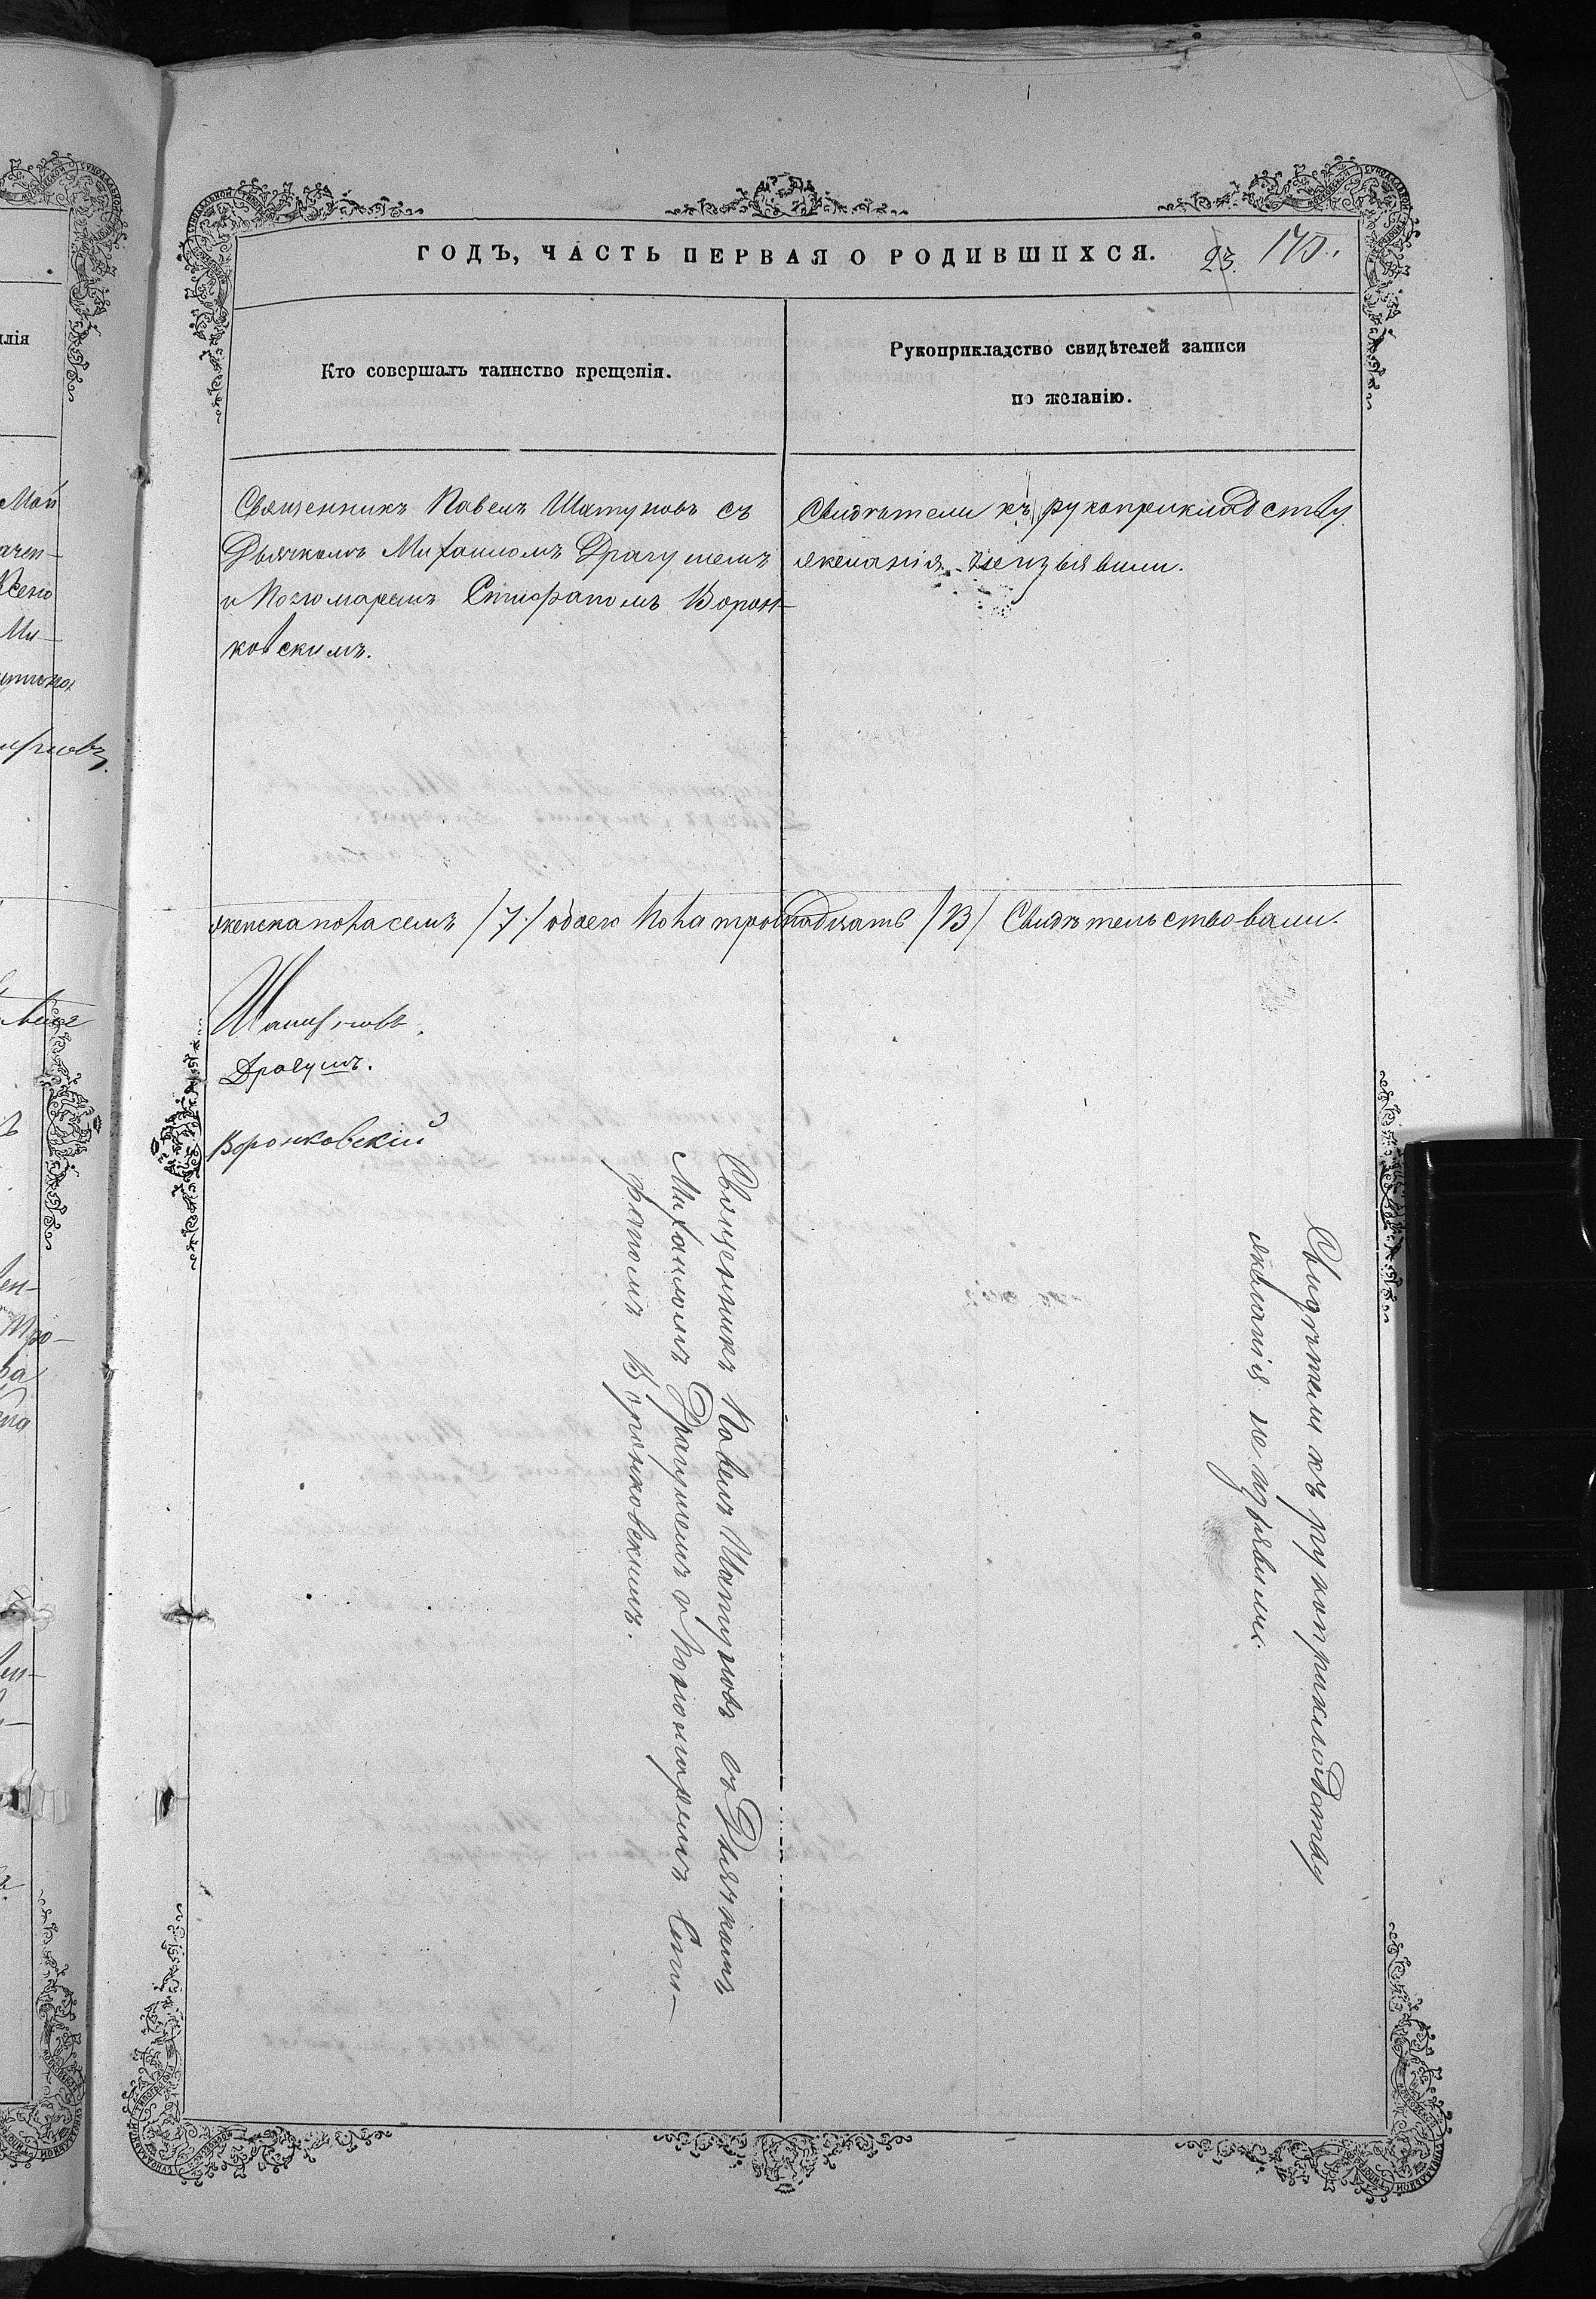 ГОДЪ, ЧАСТЬ ПЕРВАЯ О РОДИВШИХСЯ.
23. 175.
Кто совершалъ таинство крещенія.
Рукоприкладство свидѣтелей записи
по желанію.
Священникъ Павелъ Шатуновъ съ
Дьячкомъ Михаиломъ Драгушемъ
и Пономаремъ Стифаномъ Ворон-
ковскимъ.
Свидѣтели къ рукоприкладству
желанія неизъявили.
женска пола семь /7/ обоего пола тринадцать /13/ Свидѣтельствовали.
Шатуновъ.
Драгушъ.
Воронковскій
Священникъ Павелъ Шатуновъ съ Дьячкомъ
Михаиломъ Драгушемъ и Пономаремъ Сти-
фаномъ Воронковскимъ.
Свидѣтели къ рукоприкладству
желанія не изъявили.